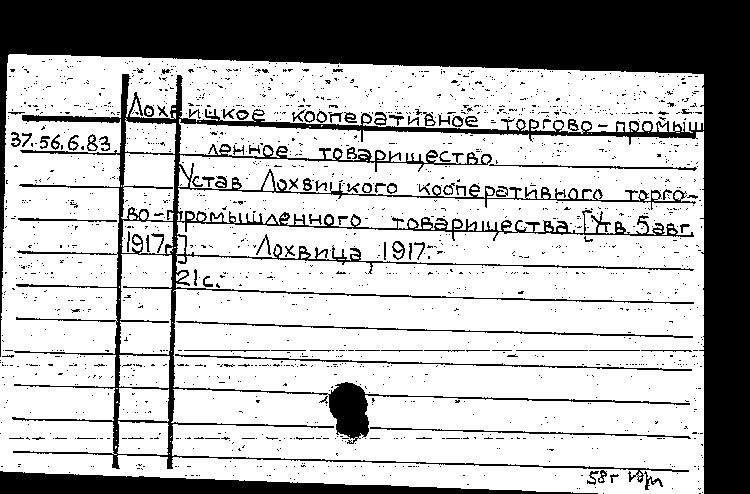 Лохвицкое кооперативное торгово-промыш
37.56.6.83. ленное товарищество.
Устав Лохвицкого кооперативного торго-
во-промышленного товарищества. [Утв. 5 авг.
1917г.]. Лохвица, 1917.-
21с.
58г